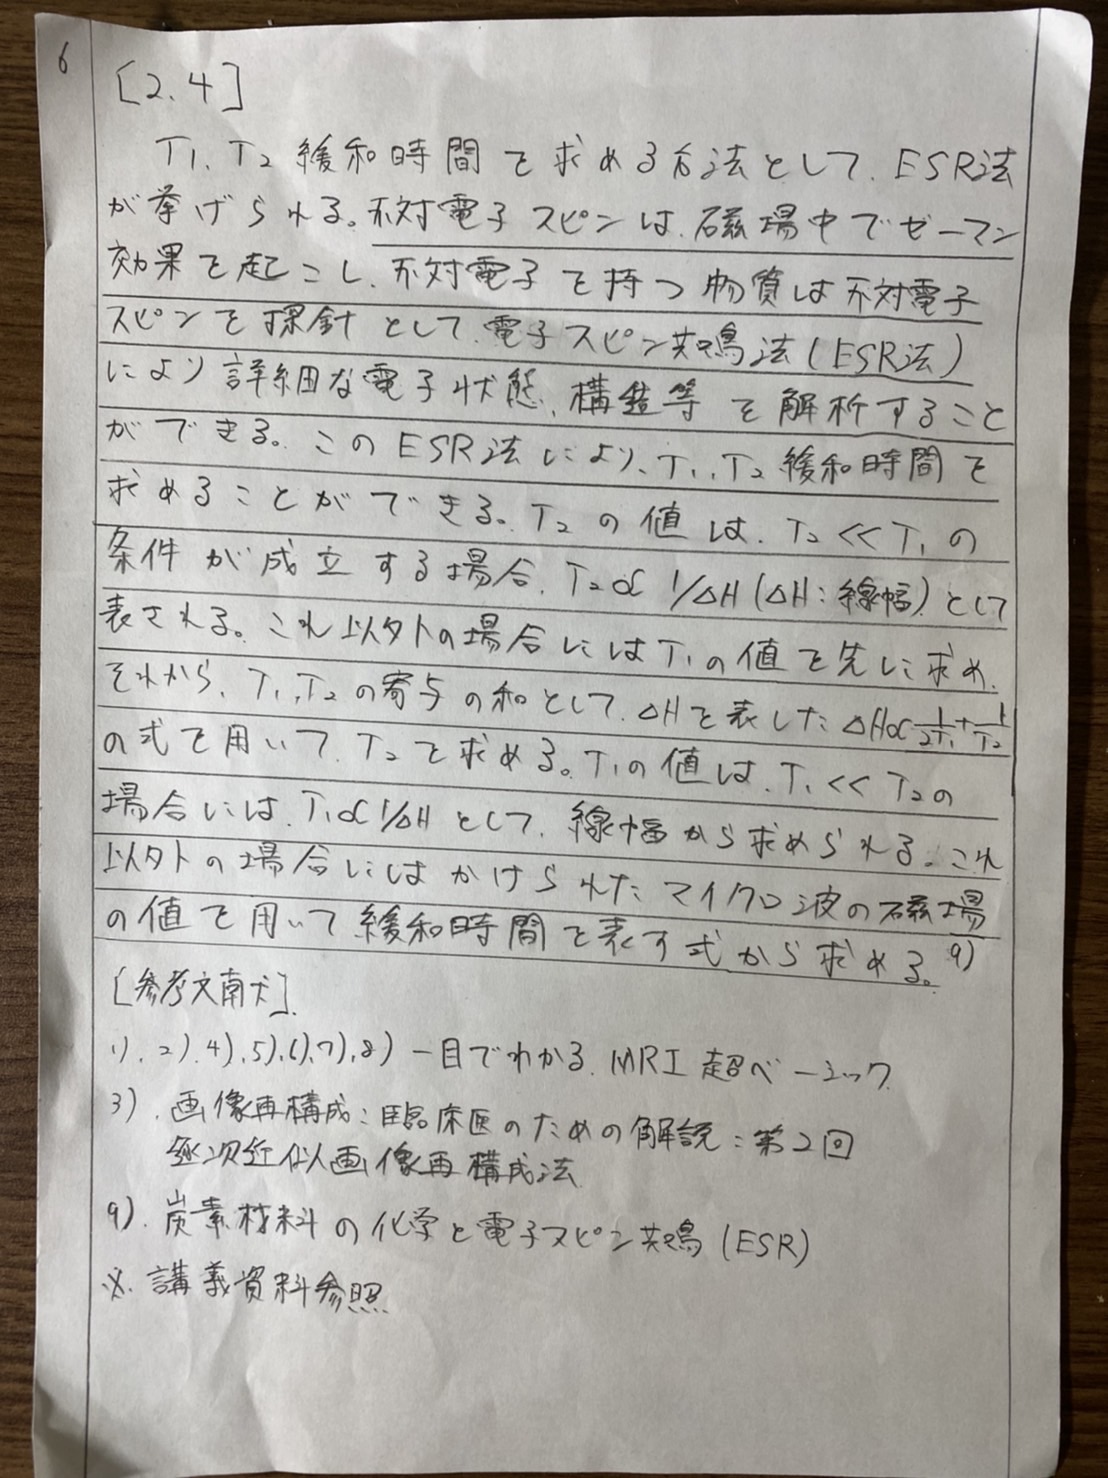 6
[2.4]
T1、T2 緩和時間を求める方法として、ESR法
が挙げられる。不対電子スピンは、磁場中でゼーマン
効果を起こし、不対電子を持つ物質は不対電子
スピンを探針として、電子スピン共鳴法(ESR法)
により詳細な電子状態、構造等を解析すること
ができる。このESR法により、T1、T2緩和時間を
求めることができる。T2の値は、T2<<T1の
条件が成立する場合、T2∝1/ΔH(ΔH:線幅)として
表される。これ以外の場合にはT1の値を先に求め、
それから、T1、T2の寄与の和として、ΔHを表したΔH∝1/2T1+1/T2
の式を用いて、T2を求める。T1の値は、T1<<T2の
場合には、T1∝1/ΔHとして、線幅から求められる。これ
以外の場合にはかけられたマイクロ波の磁場
の値を用いて緩和時間を表す式から求める。9)
[参考文献]
1)、2)、4)、5)、6)、7)、8) 一目でわかる MRI 超ベーシック
3)、画像再構成:臨床医のための解説:第2回
逐次近似画像再構成法
9)、炭素材料の化学と電子スピン共鳴(ESR)
※、講義資料参照